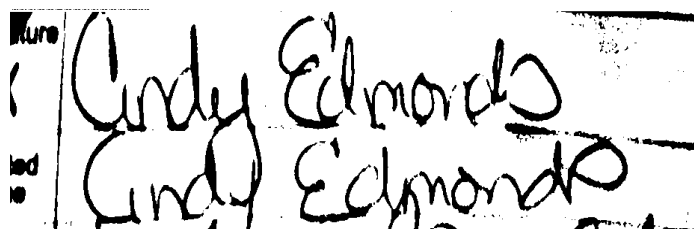 Cindy Edmonds
Cindy Edmonds